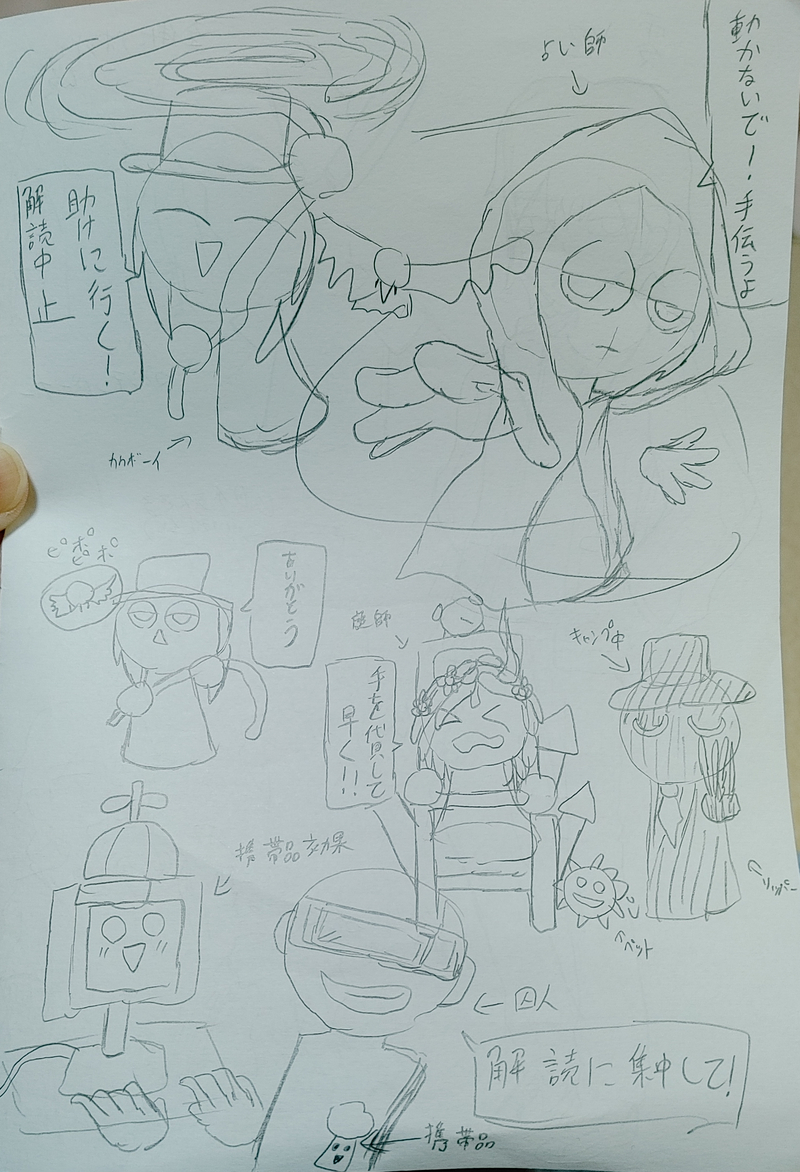 動かないで！手伝うよ
占い師
助けに行く！
解読中止
カウボーイ
ピポピポ
ありがとう
庭師
手を貸して
早く!!
キャンプ中
リッパー
ペット
携帯品効果
囚人
解読に集中して!
携帯品